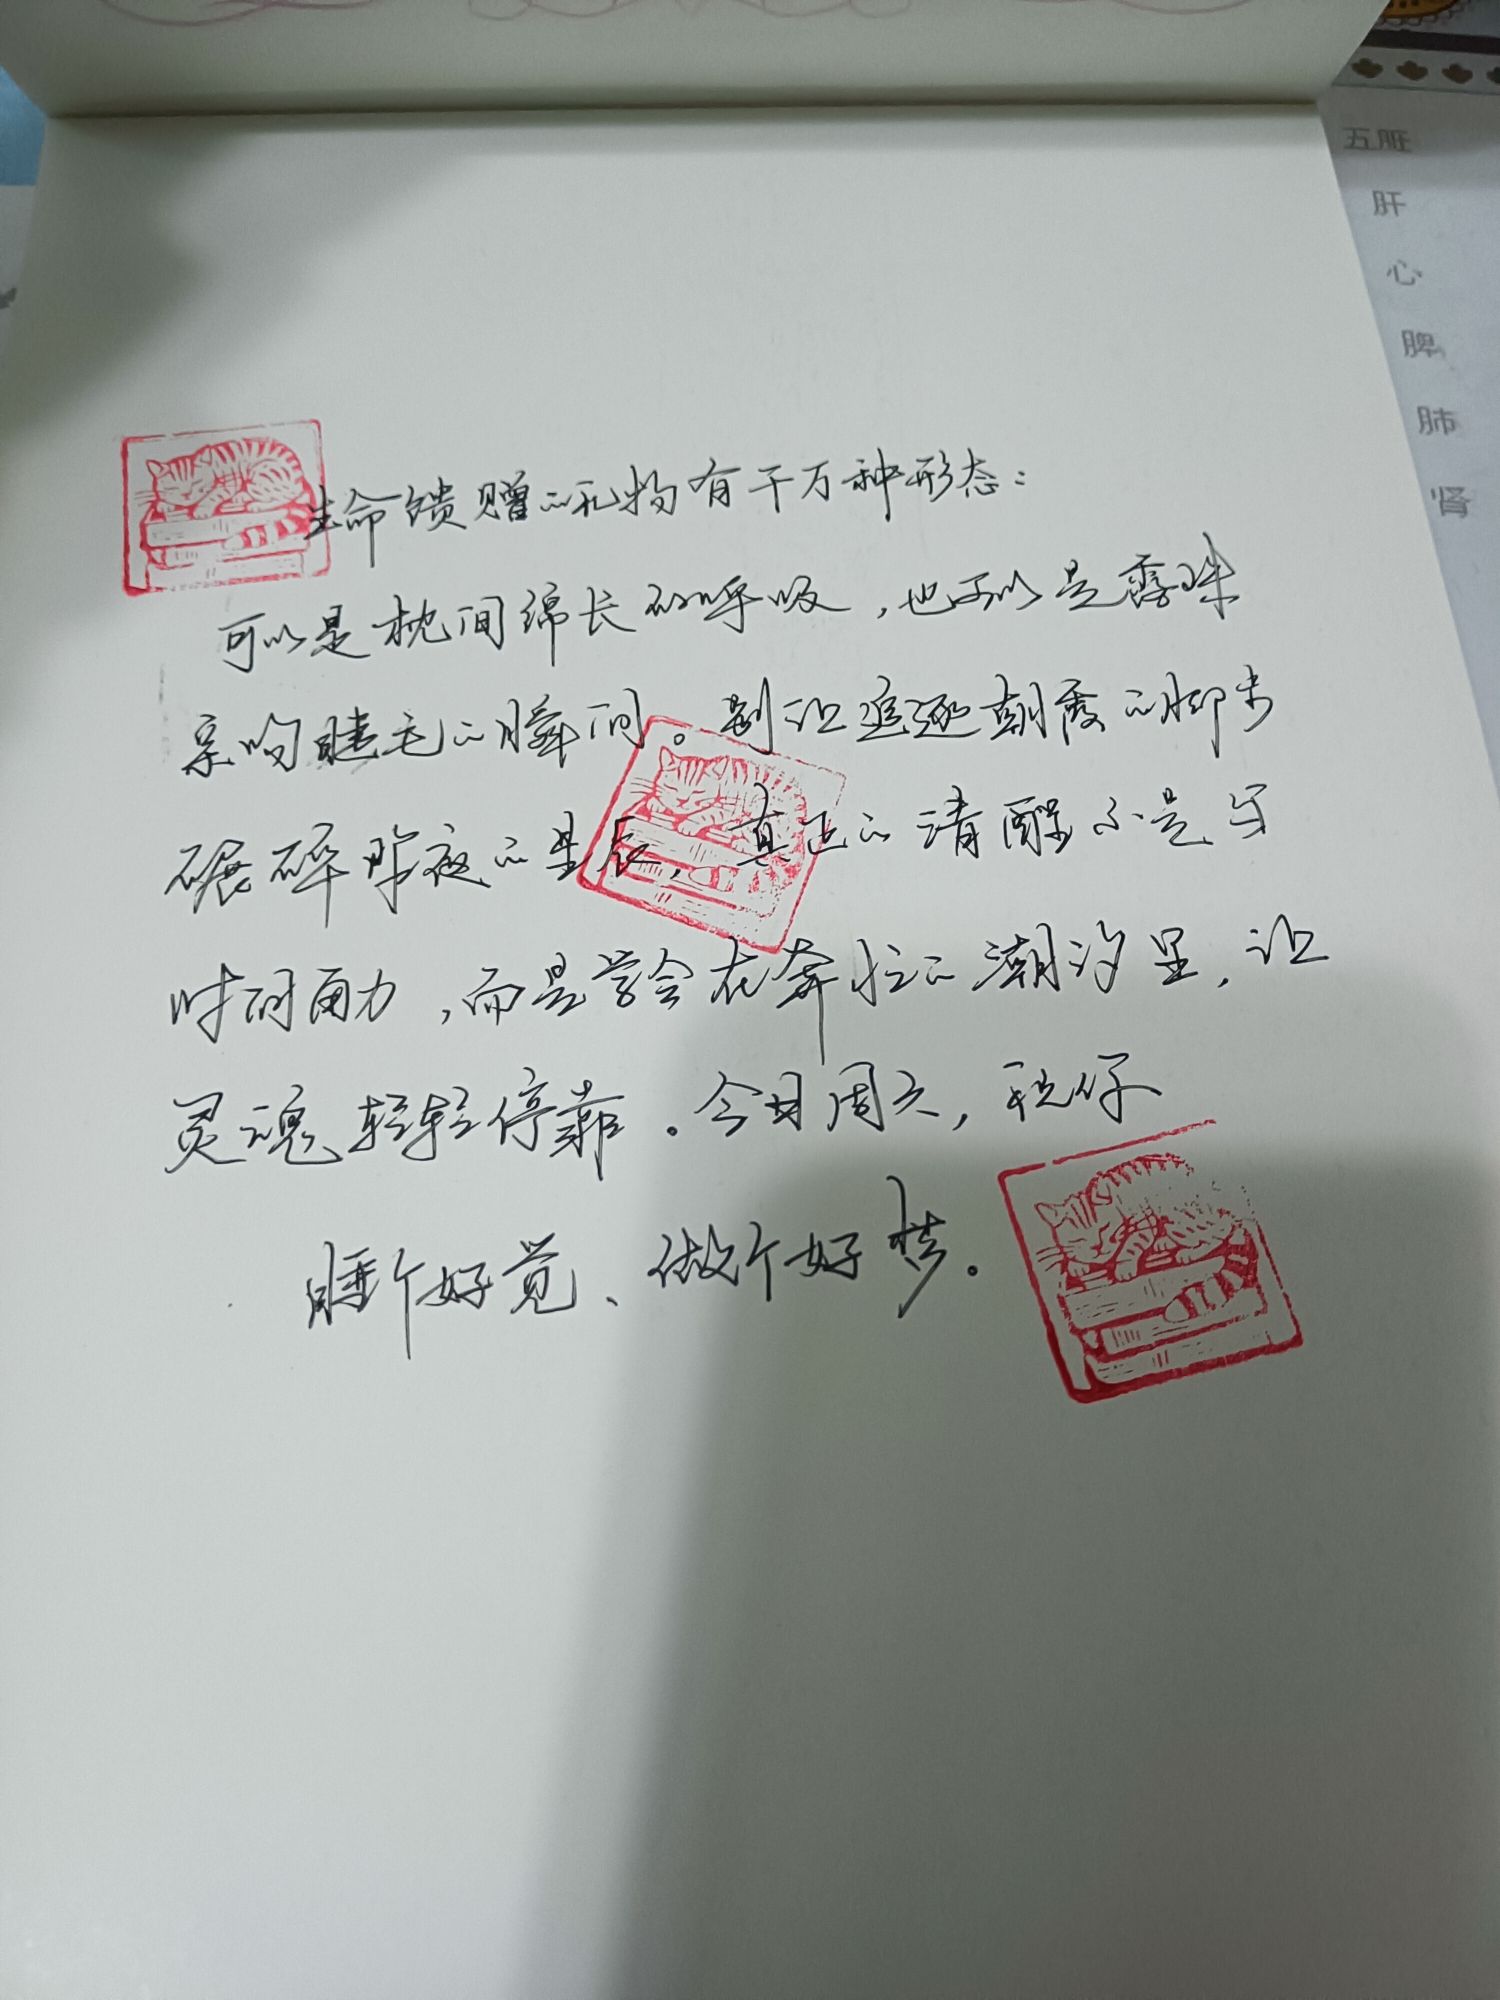 生命馈赠的礼物有千万种形态：
可以是枕间绵长的呼吸，也可以是露珠
亲吻睫毛的瞬间。别让追逐朝霞的脚步
碾碎昨夜的星辰，真正的清醒不是与
时间角力，而是学会在奔忙的潮汐里，让
灵魂轻轻停靠。今日周六，祝你
睡个好觉、做个好梦。
五脏
肝
心
脾
肺
肾